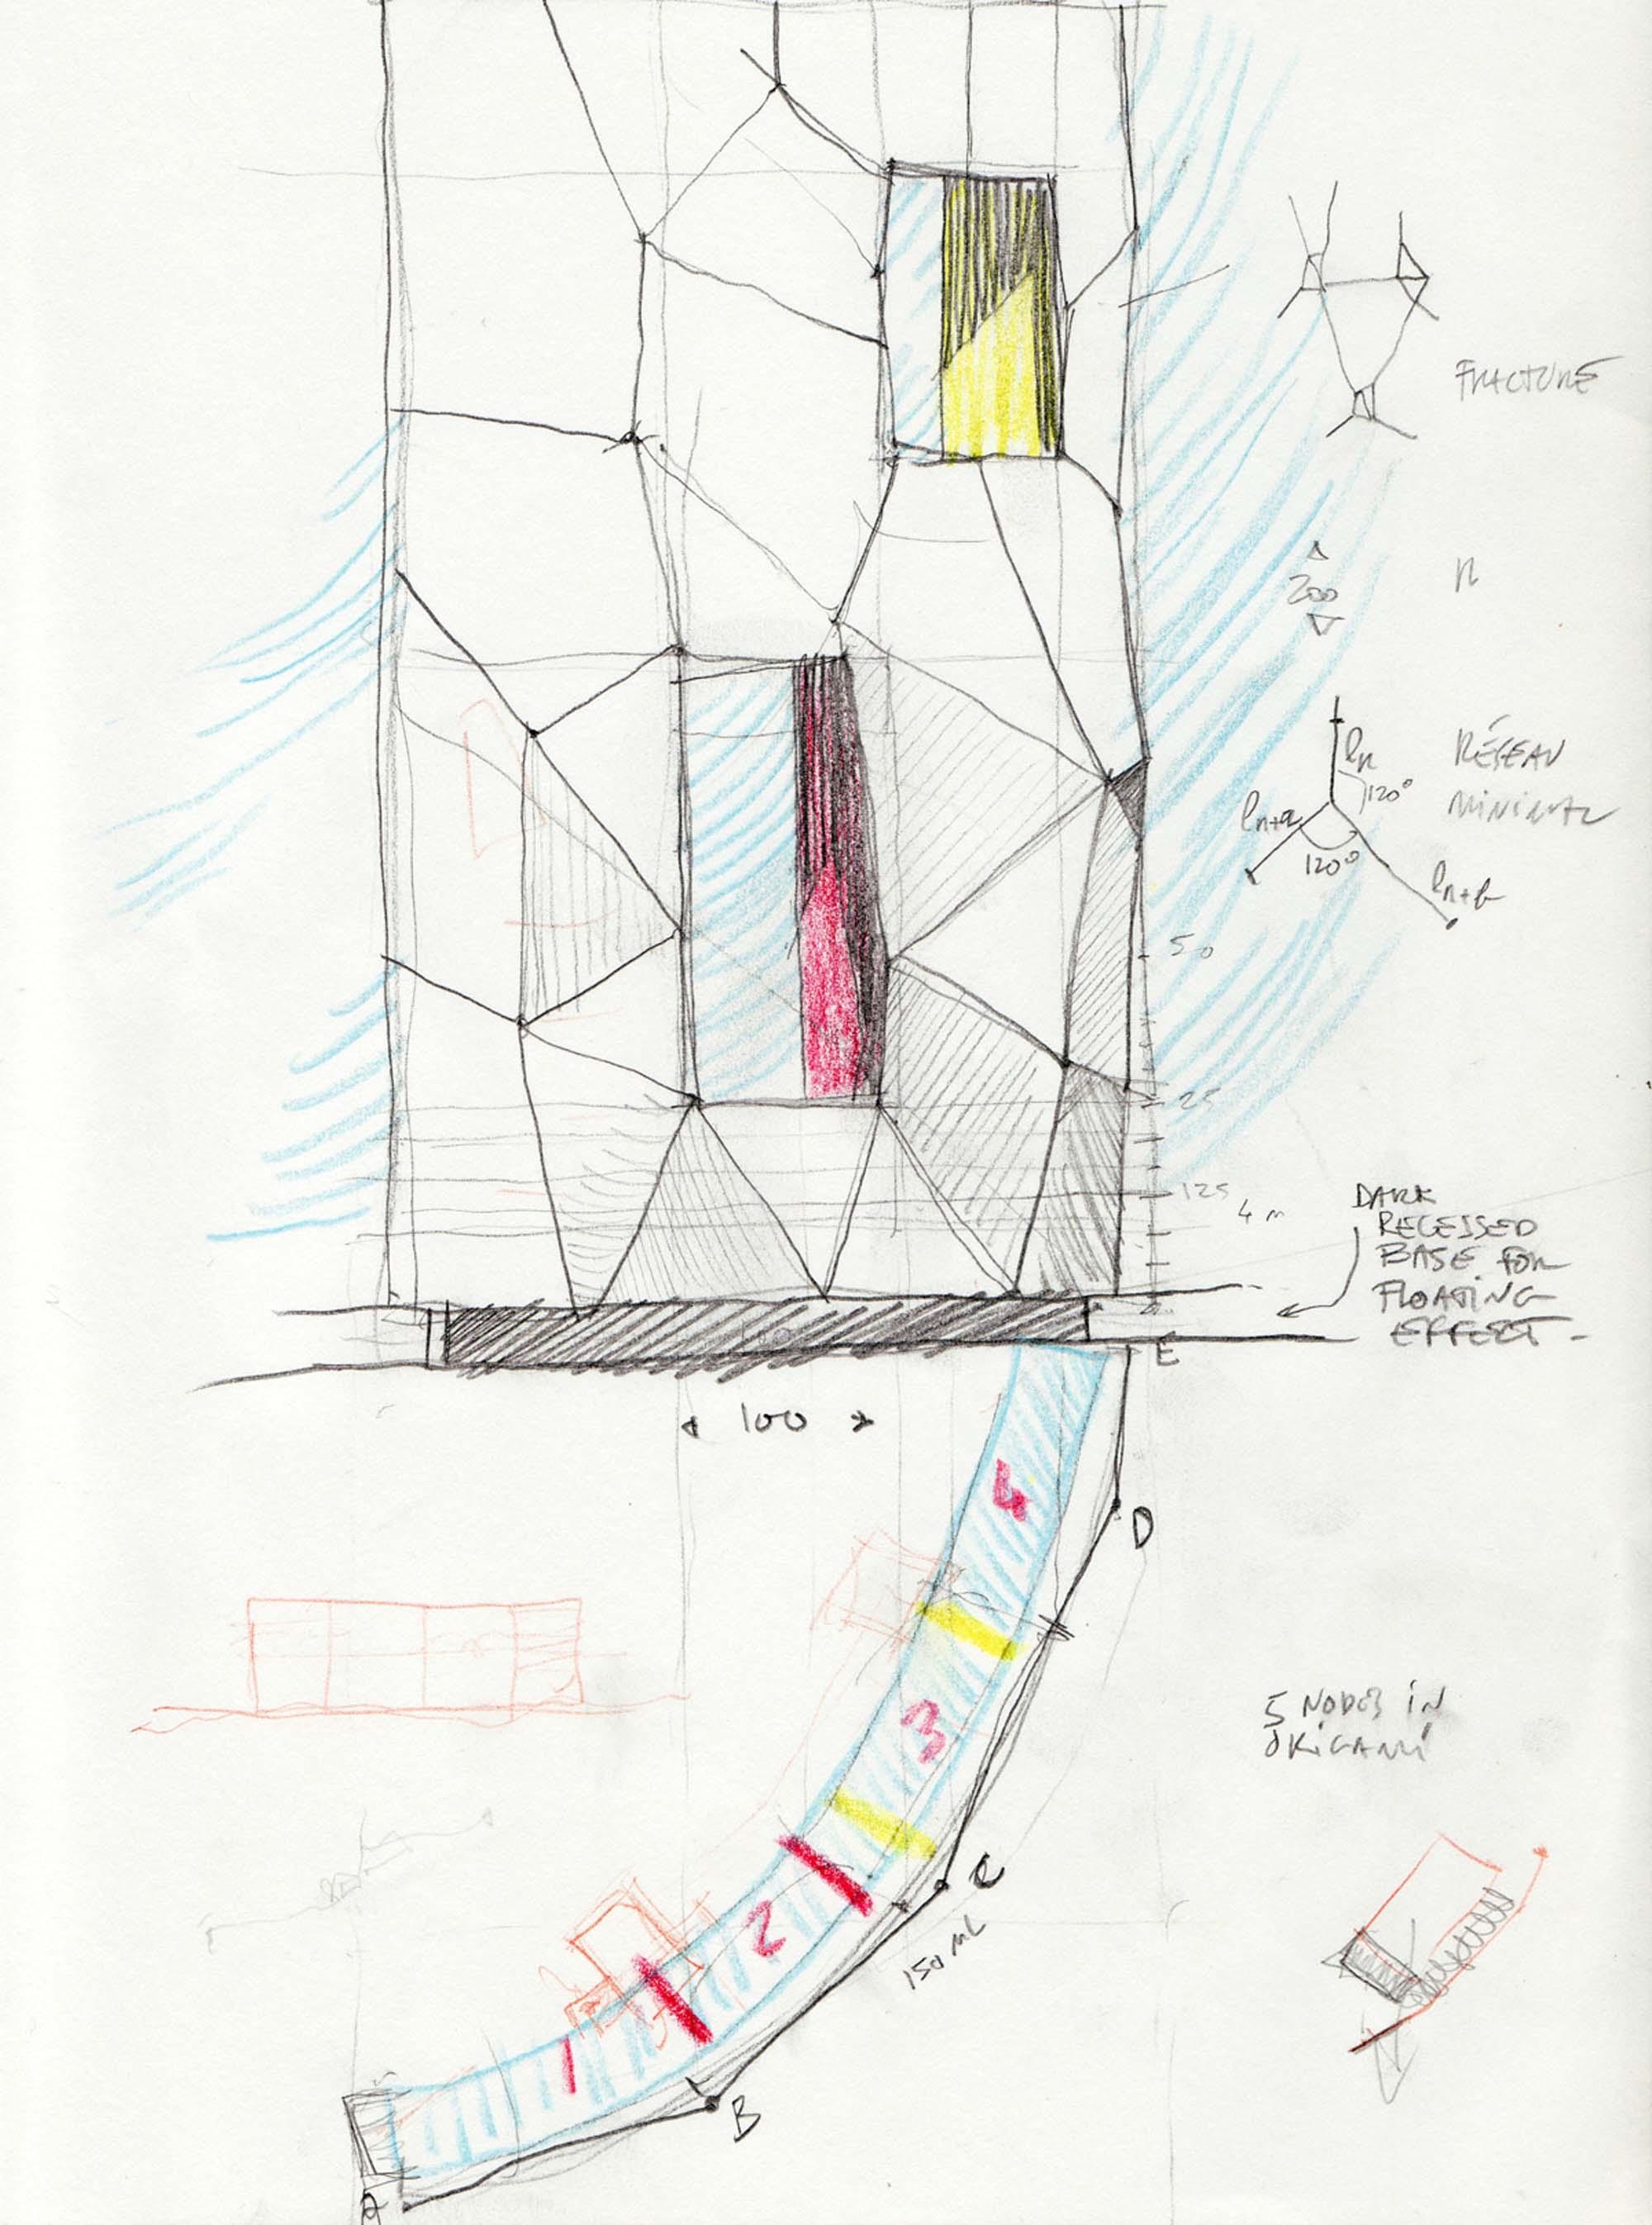 FRACTURE
200
n
ln
RÉSEAU
120°
MINIMAL
120°
ln+b
50
25
125
4 m
DARK
RECESSED
BASE FOR
FLOATING
EFFECT
E
100
4
D
3
5 NODES IN
ORIGAMI
C
2
150 ML
1
B
A